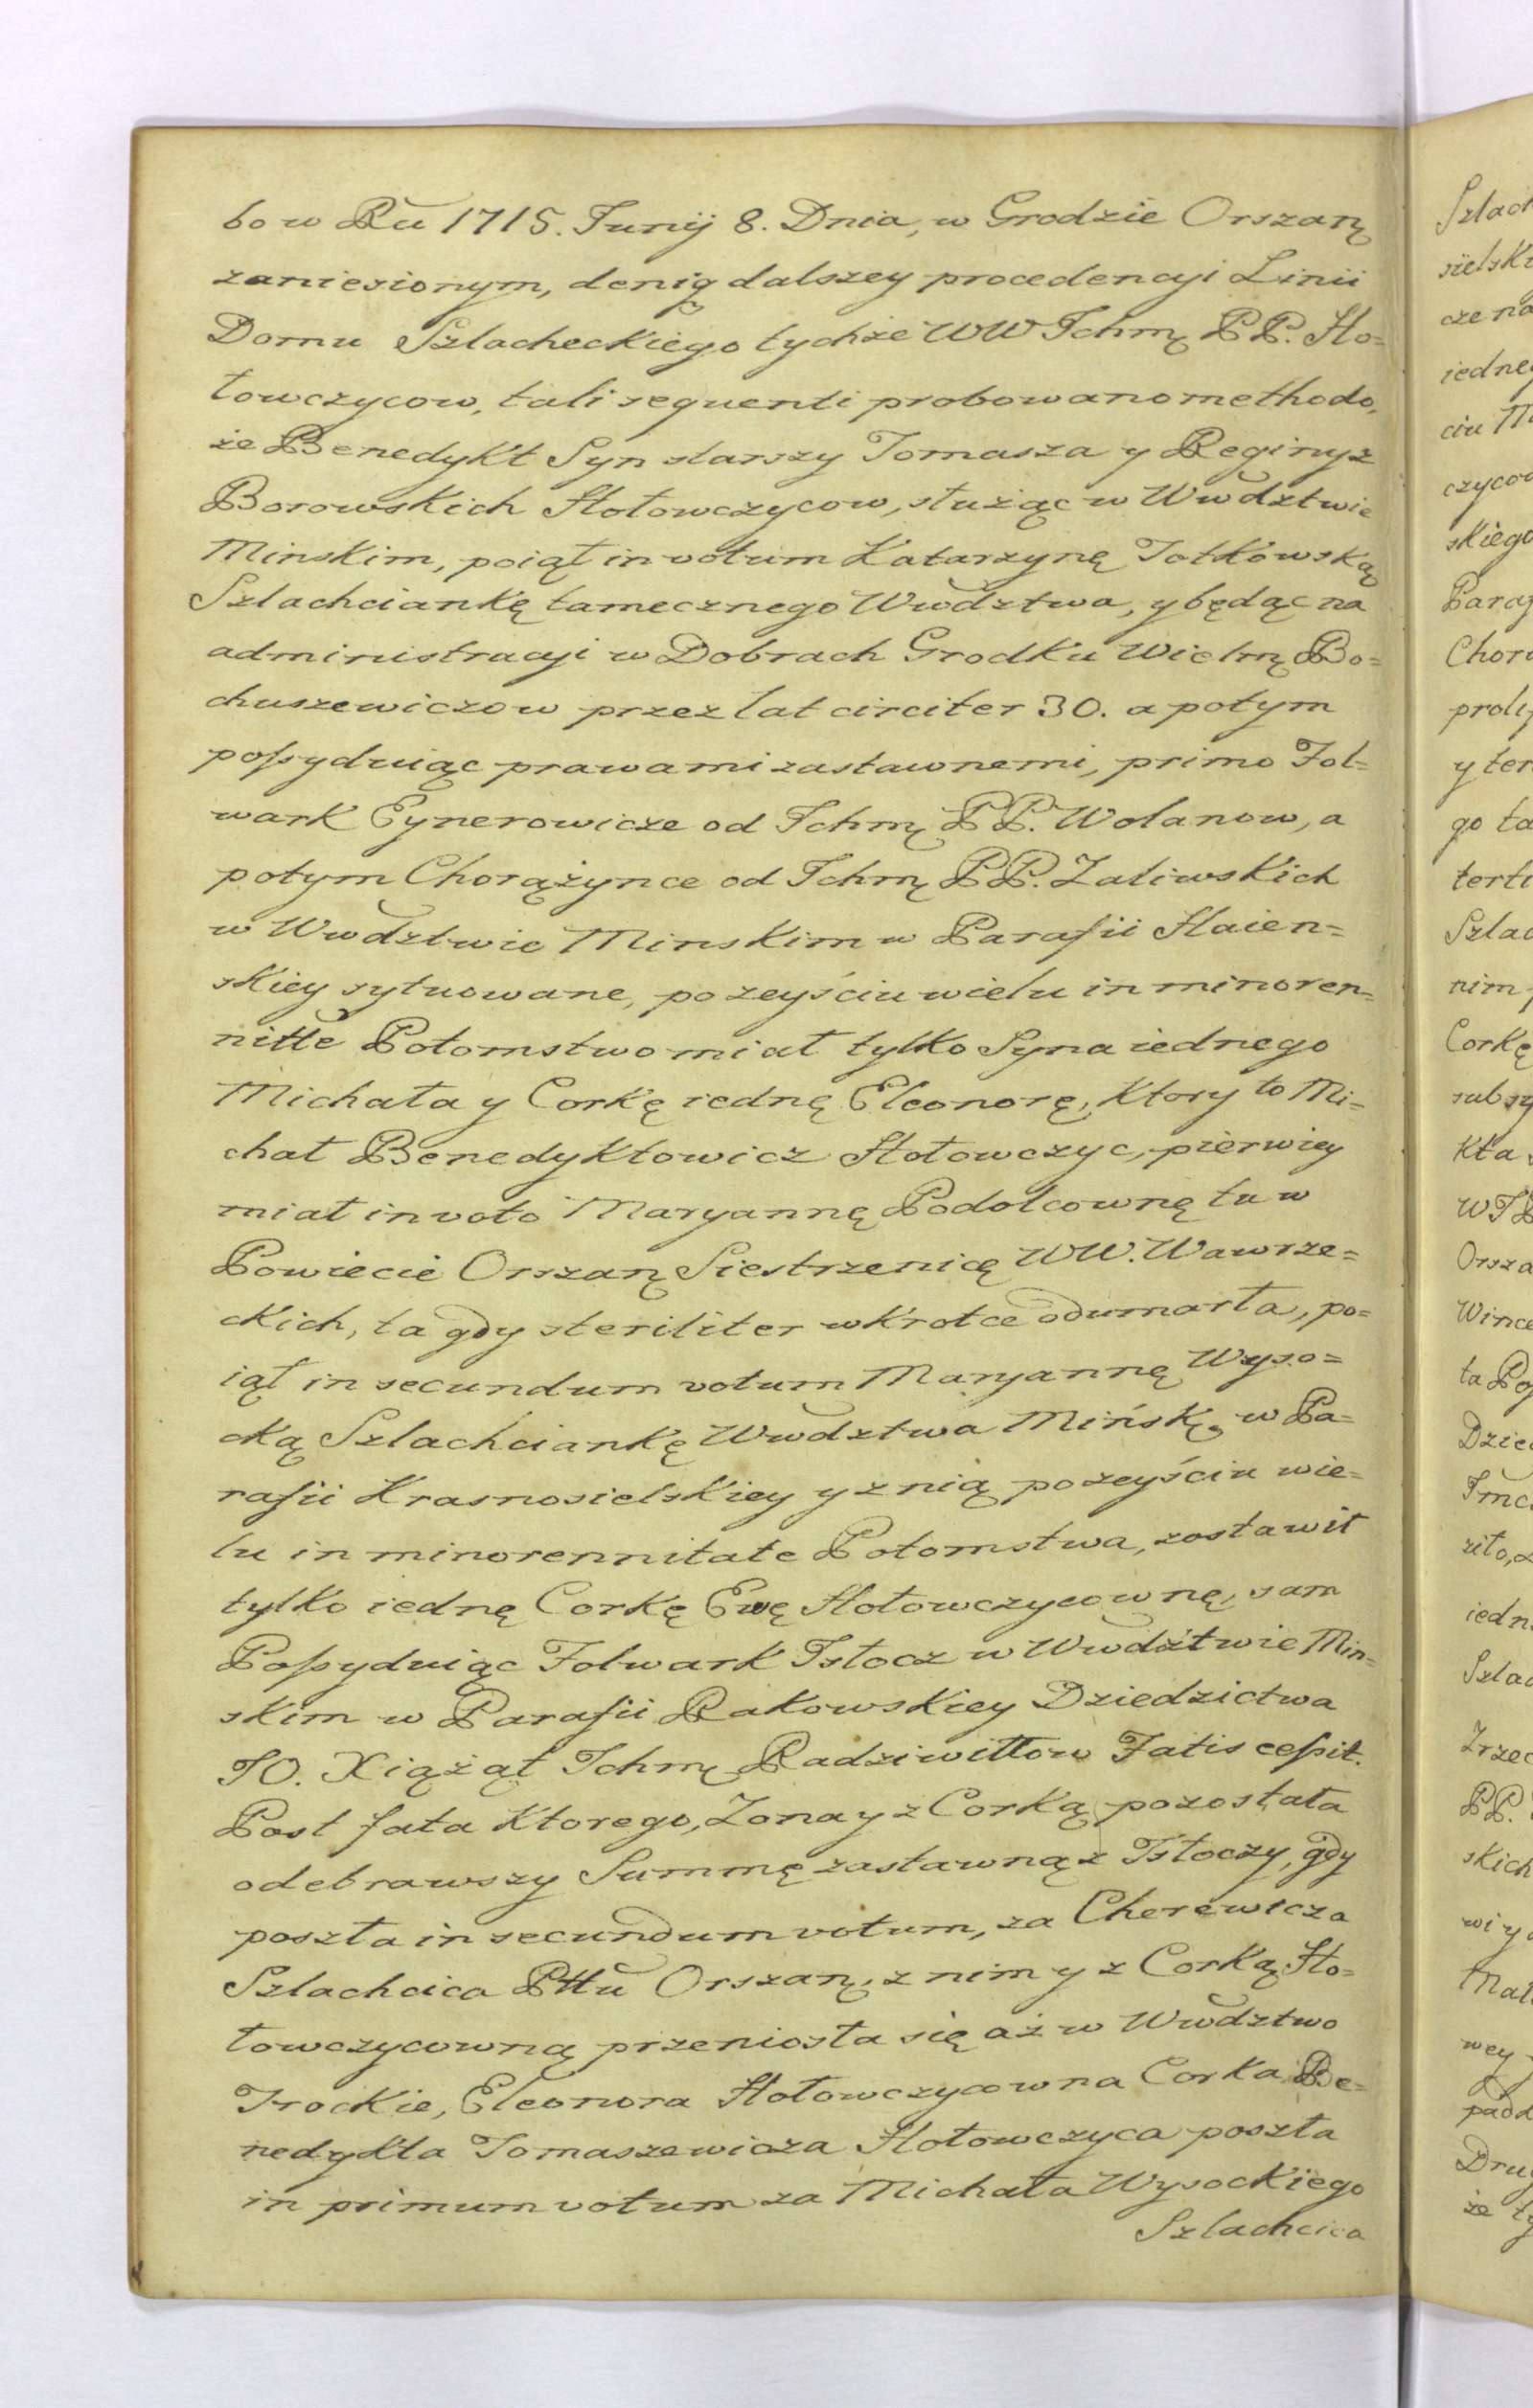 bo w Ru 1715. Junij 8. Dnia, w Grodzie Orszanę
zaniesionym, deniq dalszey procedencyi Linii
Domu Szlacheckiego tychże WW Ichmę PP. Hо=
łowczycow, tali sequenti probowano methodo,
że Benedykt Syn starszy Tomasza y Reginy z
Borowskich Hołowczycow, służąc w Wwdztwie
Minskim, poiął in votum Katarzynę Tołkowską
Szlachciankę tamecznego Wwdztwa, y będąc na
administracyi w Dobrach Grodku Wielmę Bo=
chuszewiczow przez lat circiter 30. a potym
possyduiąc prawami zastawnemi, primo Fol=
wark Eynerowicze od Ichmę PP. Wolanow, a
potym Chorążynce od Ichmę PP. Zaliwskich
w Wwdztwie Minskim w Parafii Haien=
skiey sytuowane, po zeyściu wielu in minoren=
nitte Potomstwo miał tylko Syna iednego
Michała y Corkę iednę Eleonorę, Ktory to Mi=
chał Benedyktowicz Hołowczyc, pierwiey
miał in voto Maryannę Podolcownę tu w
Powiecie Orszanę Siestrzenicę WW. Wawrze=
ckich, ta gdy steriliter wkrotce odumarła, po=
iął in secundum votum Maryannę Wyso=
cką Szlachciankę Wwdztwa Mińskę, w Pa=
rafii Krasnosielskiey y z nią po zeyściu wie=
lu in minorennitate Potomstwa, zostawił
tylko iednę Corkę Ewę Hołowczycownę, sam
Possyduiąc Folwark Isłocz w Wwdztwie Min=
skim w Parafii Rakowskiey Dziedzictwa
JO. Xiążąt Ichmę Radziwiłłow Fatis cessit.
Post fata Ktorego, Zona y z Corką pozostała
odebrawszy Summę zastawną z Isłoczy, gdy
poszła in secundum votum, za Cherewicza
Szlachcica Pttu Orszanę, z nim y z Corką Ho=
łowczycowną przeniosła się aż w Wwdztwo
Trockie, Eleonora Hołowczycowna Corka Be=
nedykta Tomaszewicza Hołowczyca poszła
in primum votum za Michała Wysockiego
Szlachcica